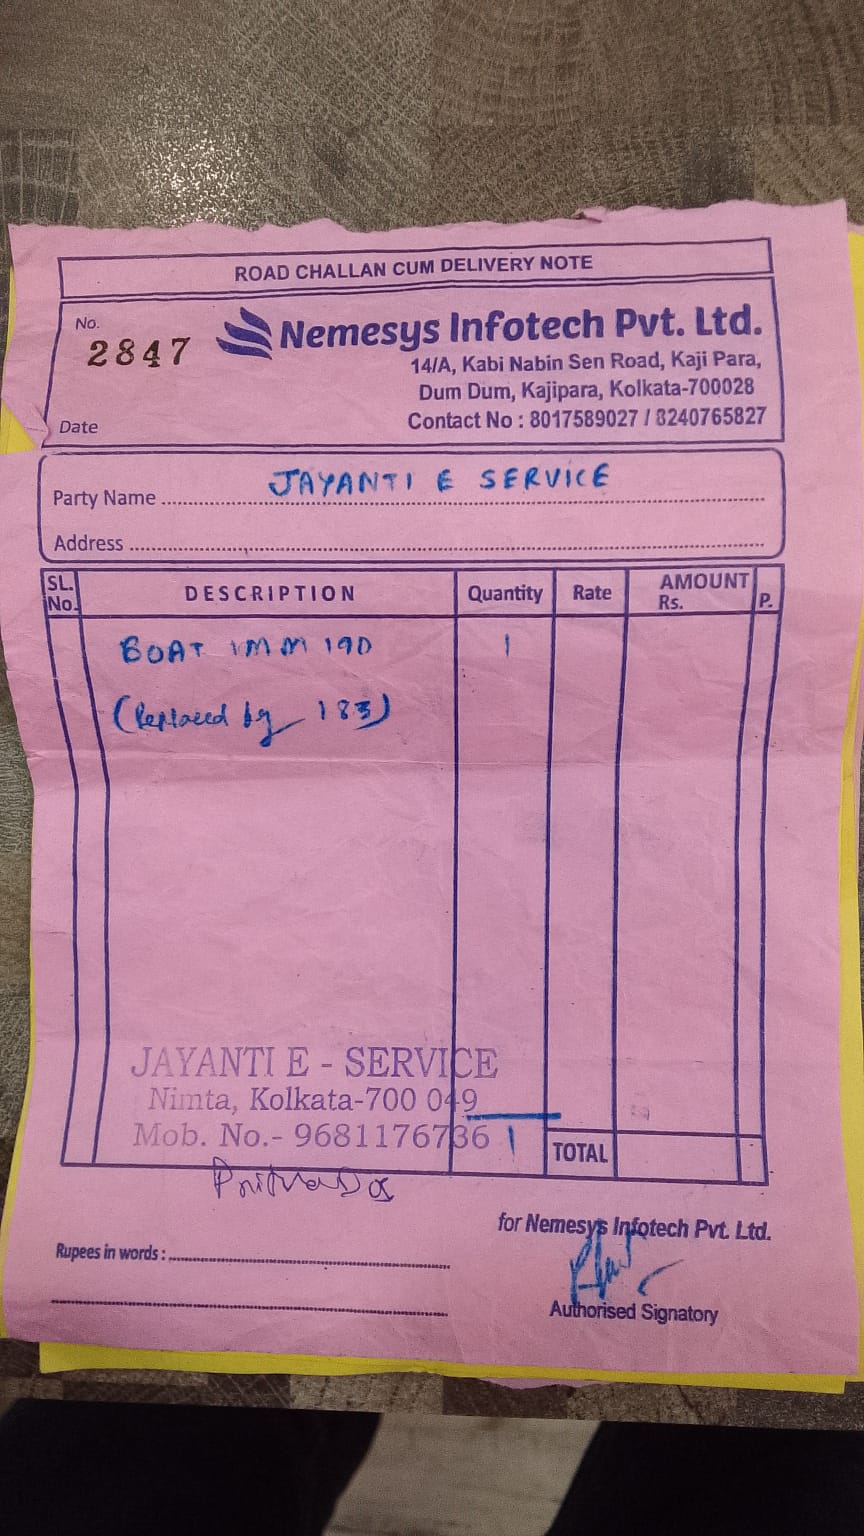 ROAD CHALLAN CUM DELIVERY NOTE
No.
2847
Nemesys Infotech Pvt. Ltd.
14/A, Kabi Nabin Sen Road, Kaji Para,
Dum Dum, Kajipara, Kolkata-700028
Date
Contact No : 8017589027 / 8240765827
Party Name JAYANTI E SERVICE
Address
SL. No. DESCRIPTION Quantity Rate AMOUNT Rs. P.
BOAT IMM 190 1
(Replaced by 183)
JAYANTI E - SERVICE
Nimta, Kolkata-700 049
Mob. No.- 9681176736 1 TOTAL
for Nemesys Infotech Pvt. Ltd.
Rupees in words :
Authorised Signatory